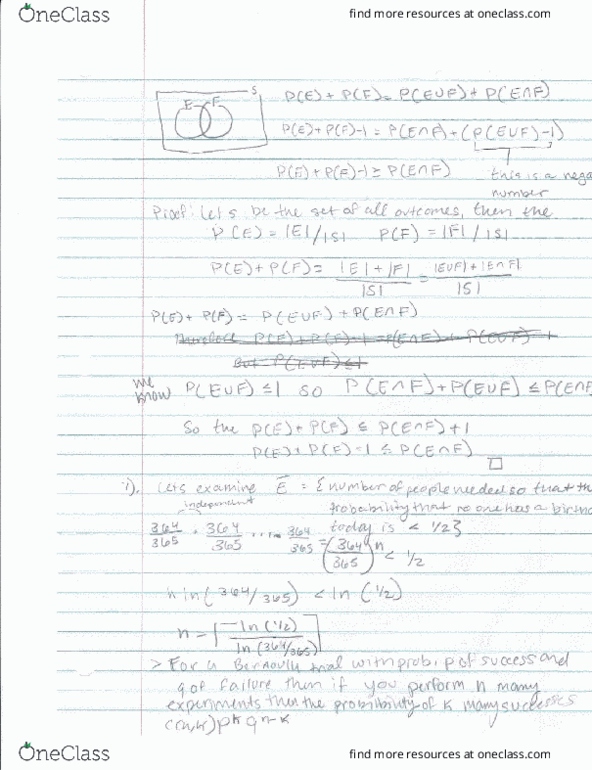 OneClass
find more resources at oneclass.com
S
E F
P(E) + P(F) = P(E∪F) + P(E∩F)
P(E) + P(F) - 1 = P(E∩F) + (P(E∪F) - 1)
P(E) + P(F) - 1 ≥ P(E∩F)
this is a nega
number
Proof: Let S be the set of all outcomes, then the
P(E) = |E|/|S| P(F) = |F|/|S|
P(E) + P(F) = |E| + |F| / |S| = |E∪F| + |E∩F| / |S|
P(E) + P(F) = P(E∪F) + P(E∩F)
Therefore P(E) + P(F) - 1 = P(E∩F) + P(E∪F) - 1
But P(E∪F) ≤ 1
we know P(E∪F) ≤ 1 so P(E∩F) + P(E∪F) ≤ P(E∩F
So the P(E) + P(F) ≤ P(E∩F) + 1
P(E) + P(F) - 1 ≤ P(E∩F)
i). Lets examine E̅ = { number of people needed so that th
independent
probability that no one has a birthd
today is < 1/2}
364/365 · 364/365 ··· 364/365 = (364/365)^n < 1/2
n ln(364/365) < ln(1/2)
n = ⌈ ln(1/2) / ln(364/365) ⌉
> For a Bernoulli trial with prob. p of success and
q of failure then if you perform n many
experiments then the probability of k many successes
C(n,k) p^k q^n-k
OneClass
find more resources at oneclass.com